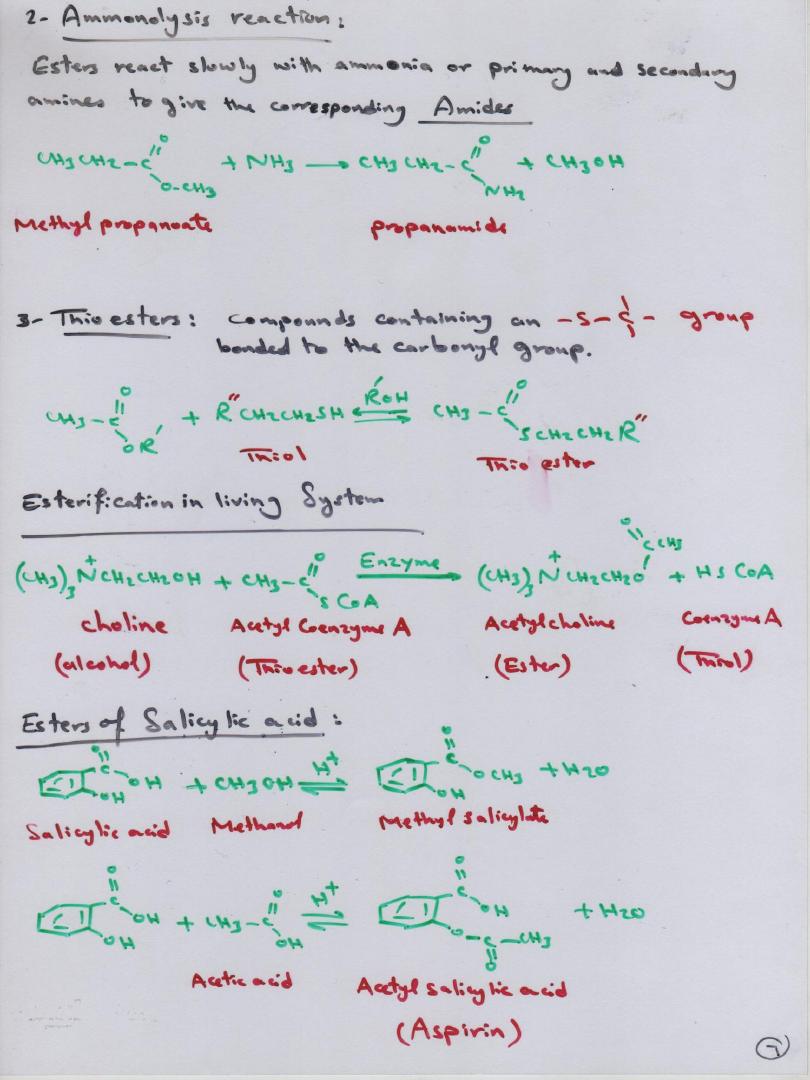 2- Ammonolysis reaction:
Esters react slowly with ammonia or primary and secondary
amines to give the corresponding Amides
CH3CH2-C(=O)O-CH3 + NH3 → CH3CH2-C(=O)NH2 + CH3OH
Methyl propanoate propanamide
3- Thio esters: compounds containing an -S-C- group
bonded to the carbonyl group.
CH3-C(=O)OR' + R''CH2CH2SH ⇌ R'OH CH3-C(=O)SCH2CH2R''
Thiol Thio ester
Esterification in living System
(CH3)3N+CH2CH2OH + CH3-C(=O)S CoA Enzyme → (CH3)3N+CH2CH2O C(=O)CH3 + HS CoA
choline Acetyl Coenzyme A Acetylcholine Coenzyme A
(alcohol) (Thioester) (Ester) (Thiol)
Esters of Salicylic acid:
C(=O)OH OH + CH3OH H+ ⇌ C(=O)OCH3 OH + H2O
Salicylic acid Methanol Methyl salicylate
C(=O)OH OH + CH3-C(=O)OH H+ ⇌ C(=O)OH O-C(=O)-CH3 + H2O
Acetic acid Acetyl salicylic acid
(Aspirin)